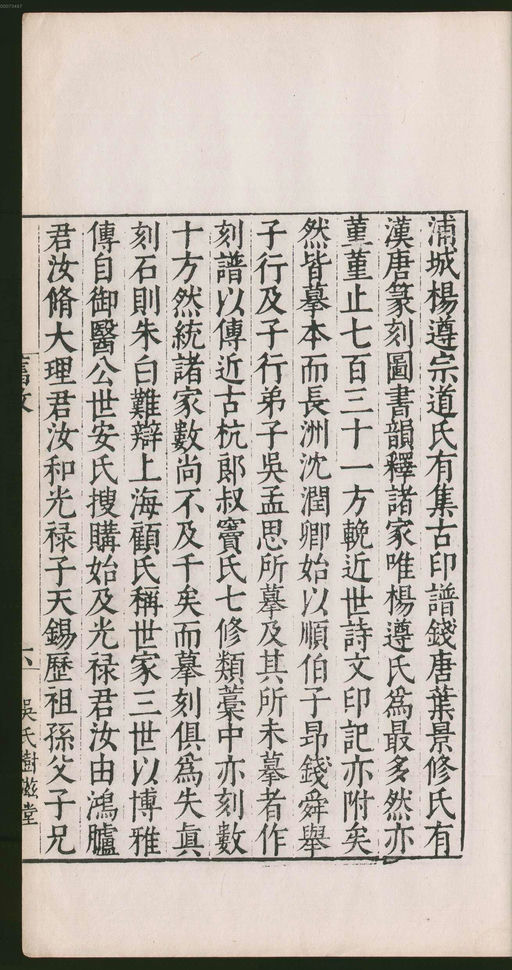 浦城楊遵宗道氏有集古印譜錢唐葉景修氏有
漢唐篆刻圖書韻釋諸家唯楊遵氏為最多然亦
菫菫止七百三十一方輓近世詩文印記亦附矣
然皆摹本而長洲沈潤卿始以順伯子昂錢舜舉
子行及子行弟子吳孟思所摹及其所未摹者作
刻譜以傳近古杭郎叔寶氏七修類藁中亦刻數
十方然統諸家數尚不及千矣而摹刻俱為失眞
刻石則朱白難辯上海顧氏稱世家三世以博雅
傳自御醫公世安氏搜購始及光禄君汝由鴻臚
君汝脩大理君汝和光禄子天錫歷祖孫父子兄
舊敘
六
吳氏樹滋堂
00073487